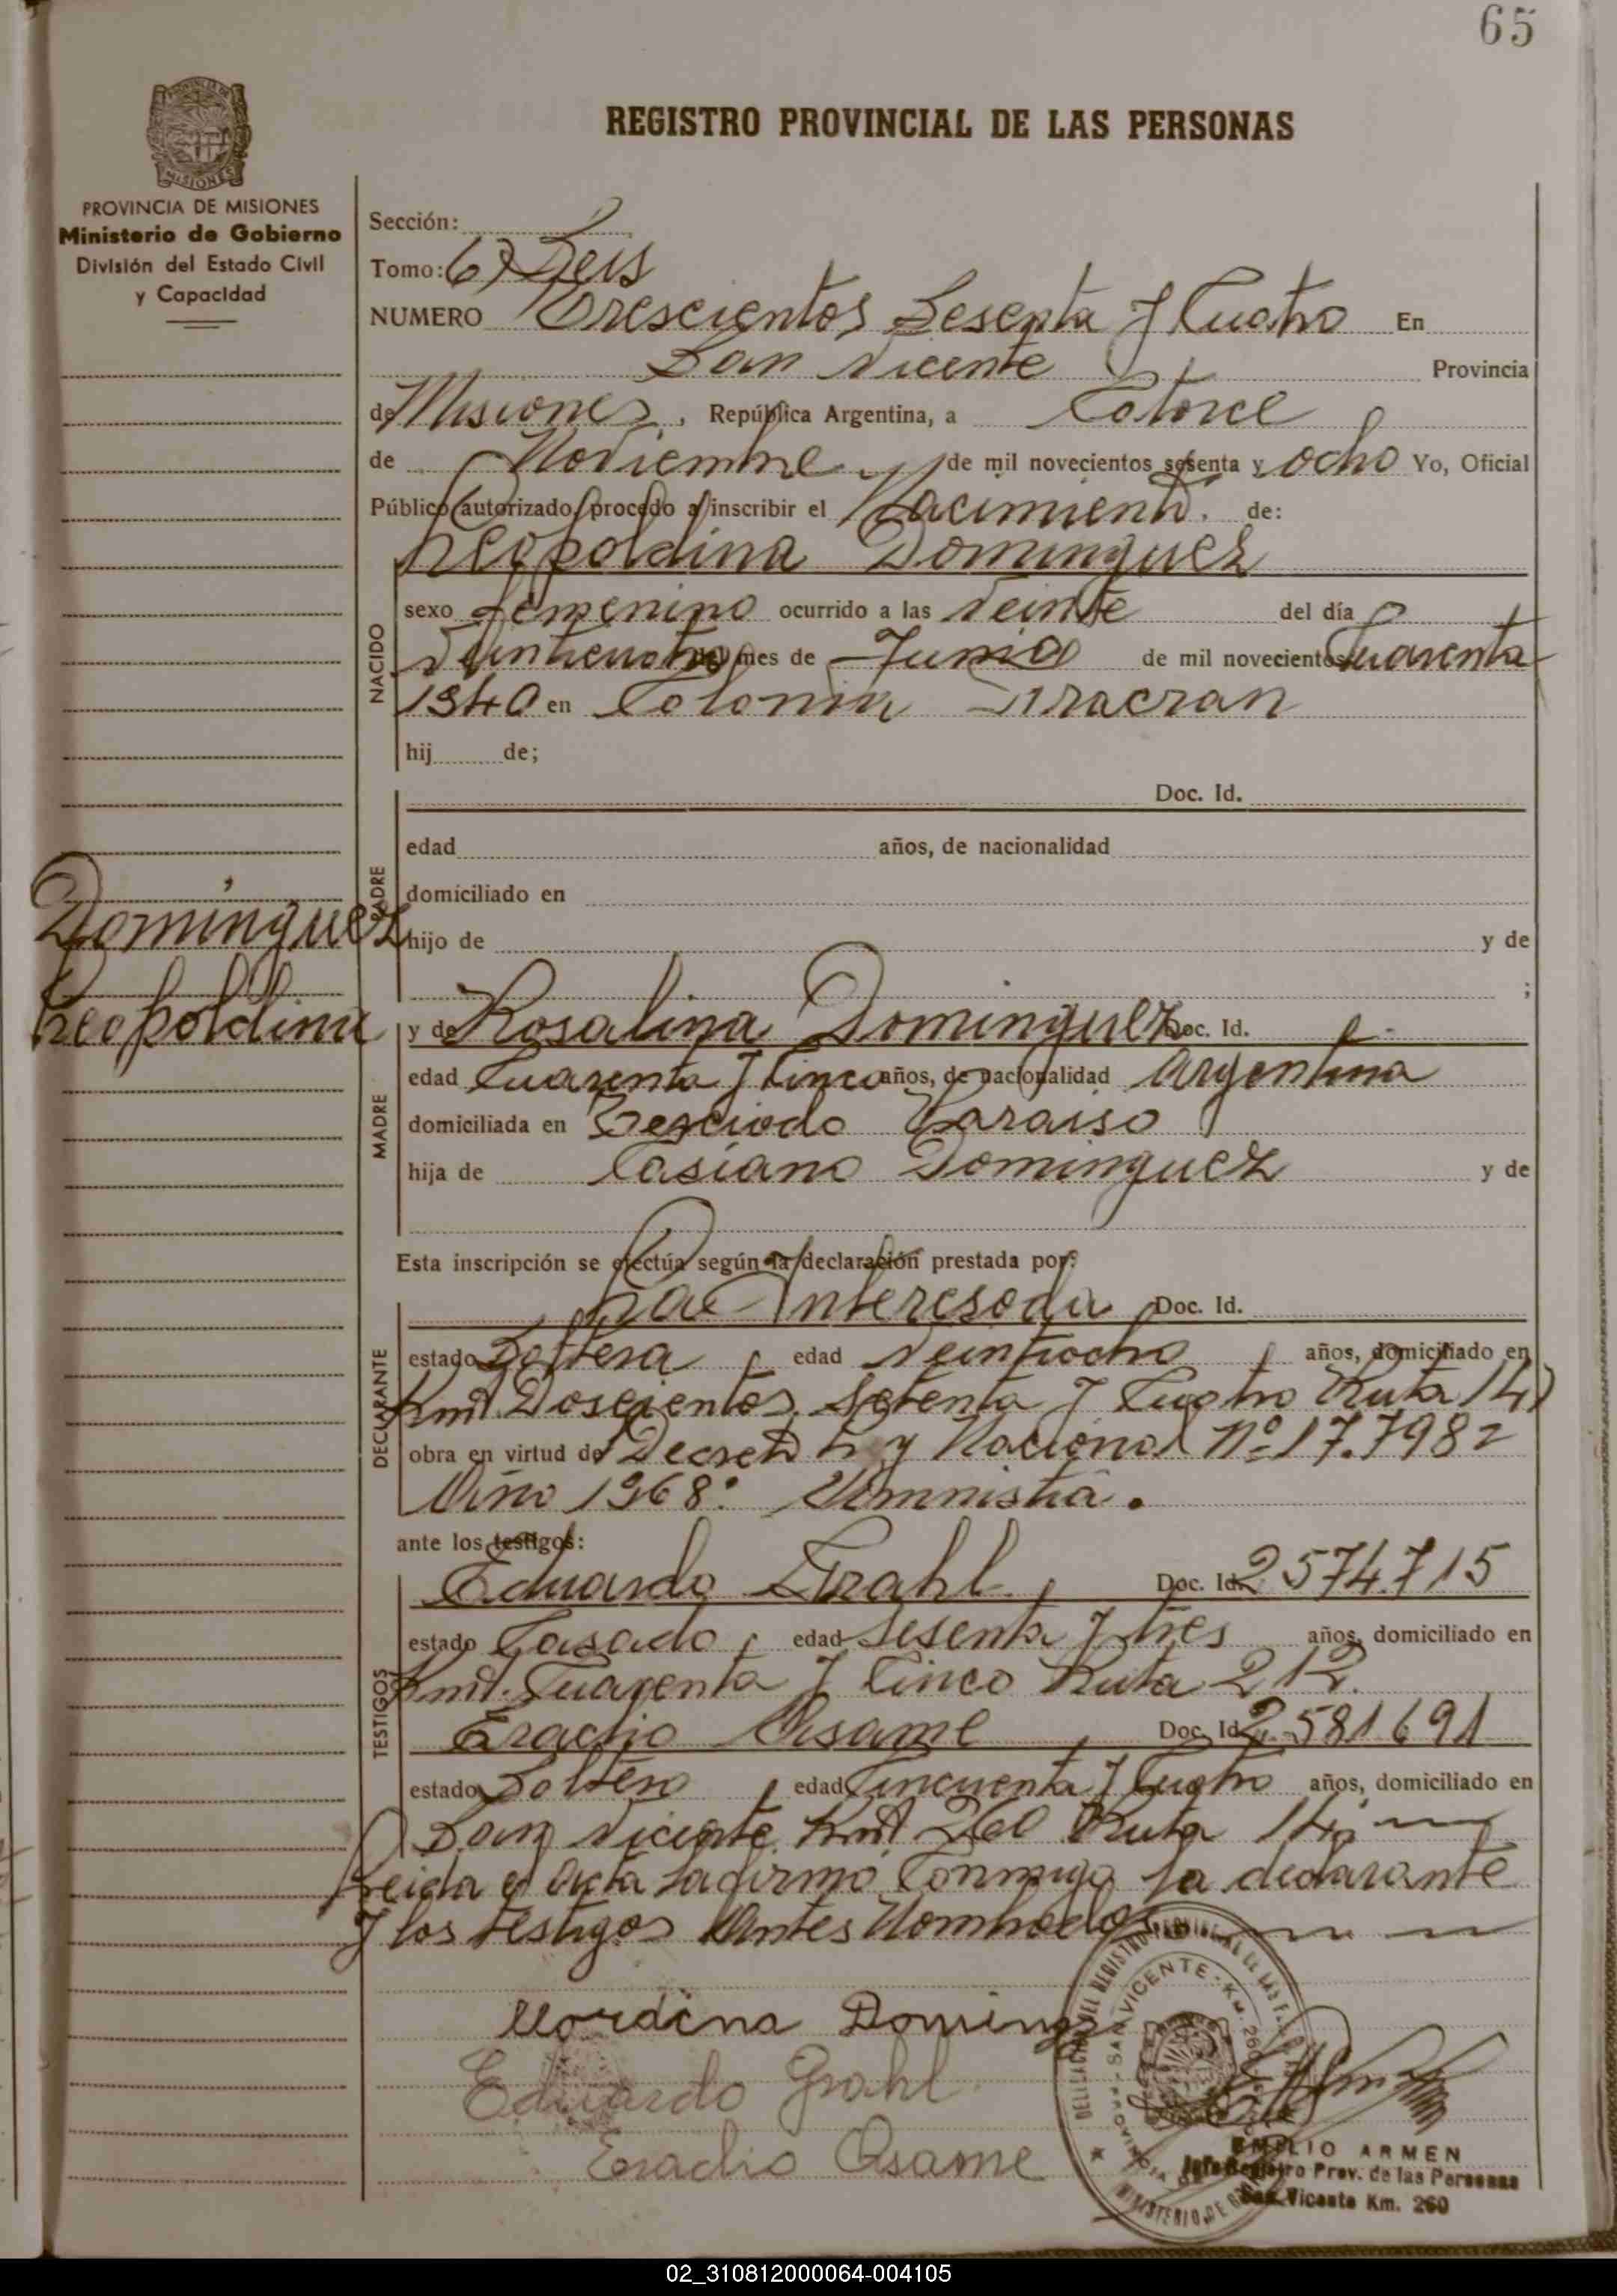 65
REGISTRO PROVINCIAL DE LAS PERSONAS
PROVINCIA DE MISIONES
Ministerio de Gobierno
División del Estado Civil
y Capacidad
Sección:
Tomo: 6) Seis
NUMERO Trescientos Sesenta y Cuatro En
San Vicente Provincia
de Misiones, República Argentina, a Catorce
de Noviembre de mil novecientos sesenta y ocho Yo, Oficial
Público autorizado, procedo a inscribir el Nacimiento. de:
Leopoldina Dominguez
NACIDO
sexo femenino ocurrido a las veinte del día
del mes de Junio de mil novecientos Cuarenta
1940 en Colonia Aracran
hij de;
PADRE
Doc. Id.
edad años, de nacionalidad
domiciliado en
hijo de y de
;
Dominguez
Leopoldina
MADRE
y de Rosalina Dominguez Doc. Id.
edad Cuarenta y Cinco años, de nacionalidad Argentina
domiciliada en Paraiso
hija de Casiano Dominguez y de
Esta inscripción se efectúa según la declaración prestada por:
DECLARANTE
La Interesada Doc. Id.
estado Soltera, edad veintiocho, años, domiciliado en
Km. Doscientos Setenta y Cuatro Ruta 14)
obra en virtud de Decreto Ley Nacional Nº 17.7982
Año 1968: Amnistia.
ante los testigos:
TESTIGOS
Eduardo Grahl, Doc. Id. 2574.715
estado Casado, edad Sesenta y tres años, domiciliado en
Km. Cuarenta y Cinco Ruta 212.
Eradio Asame, Doc. Id. 2.581691
estado Soltero, edad Cincuenta y Cuatro años, domiciliado en
San Vicente Km 260 Ruta 14;
Leida el Acta la firmo Conmigo la declarante
y los testigos Antes Nombrados
Domingu
Eduardo Grahl
Eradio Asame
DELEGACION DEL REGISTRO PROVINCIAL DE LAS PERSONAS
SAN VICENTE - Km. 260
MINISTERIO DE
EMILIO ARMEN
Jefe Registro Prov. de las Personas
San Vicente Km. 260
02_310812000064-004105